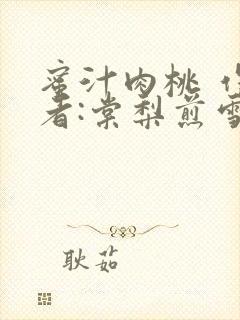 蜜汁肉桃
者:棠梨煎雪
耿茹